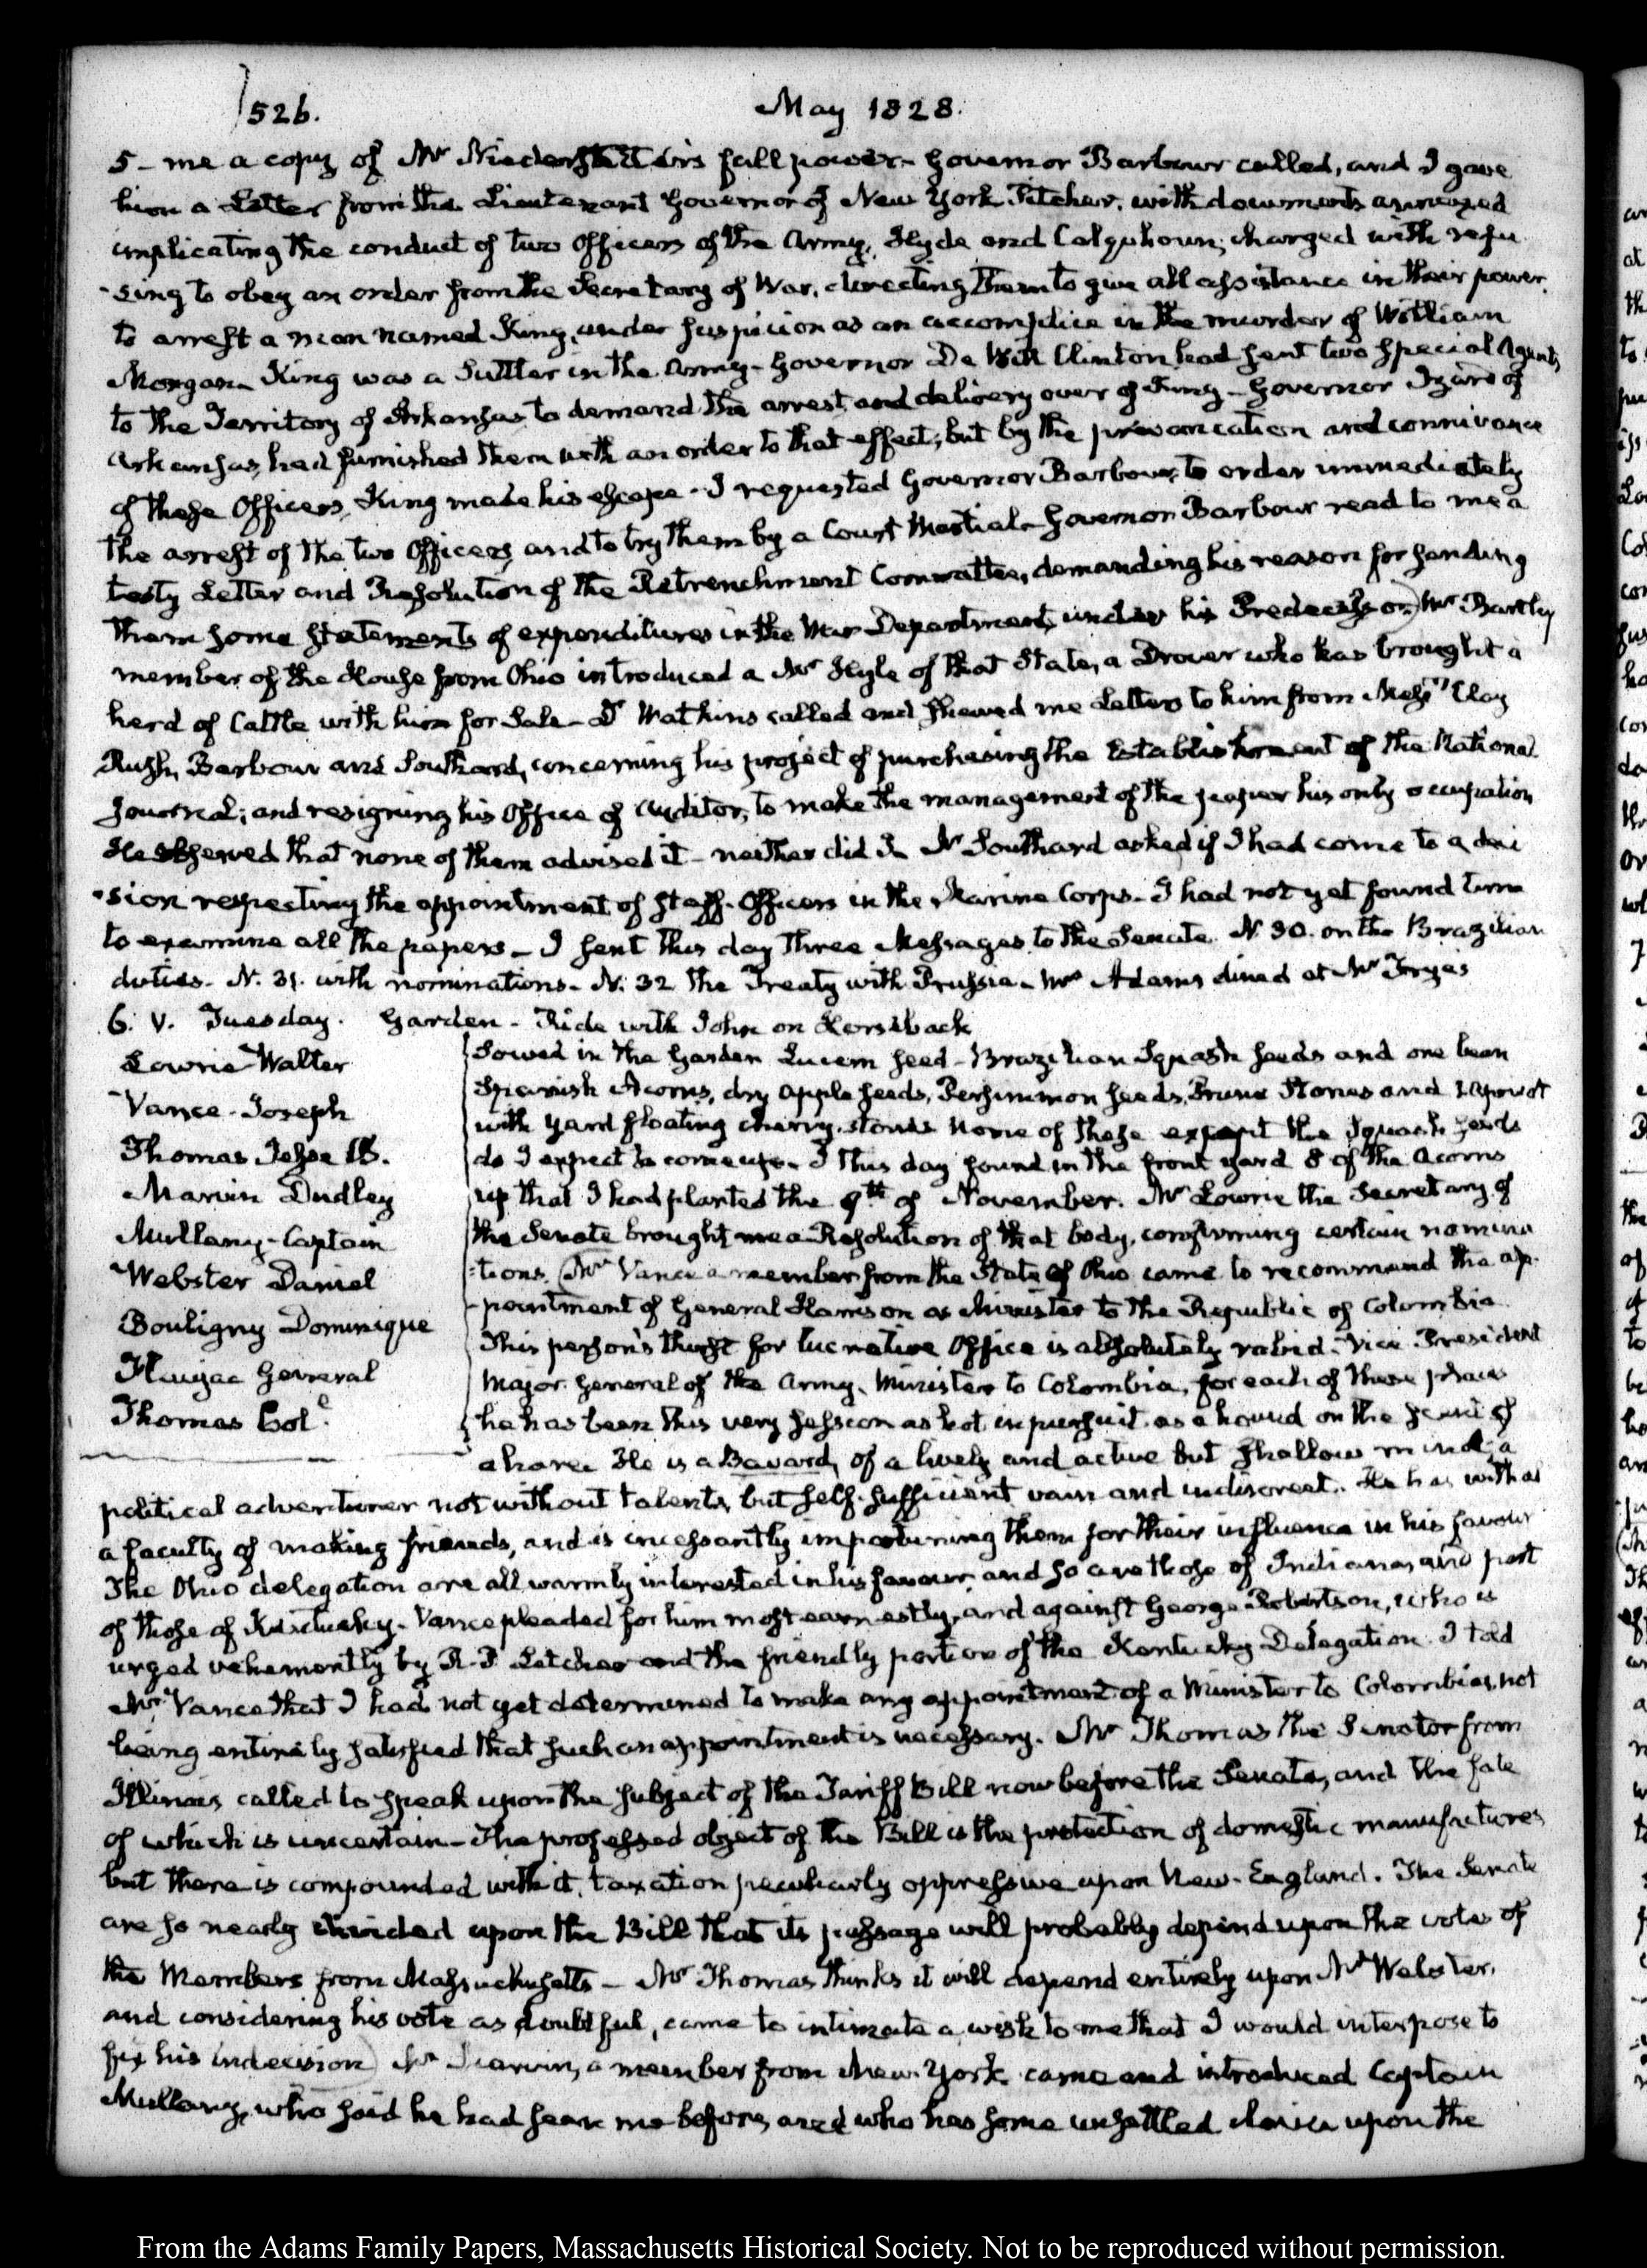 526.
May 1828.
5- me a copy of Mr Niederstetter's full power- Governor Barbour called, and I gave
him a Letter from the Lieutenant Governor of New York Pitcher, with documents annexed
implicating the conduct of two Officers of the Army, Hyde and Colquhoun, charged with refu
-sing to obey an order from the Secretary of War, directing them to give all assistance in their power,
to arrest a man named King, under suspicion as an accomplice in the murder of William
Morgan. King was a Sutler in the Army- Governor De Witt Clinton had sent two special Agents,
to the Territory of Arkansas to demand the arrest and delivery over of King- Governor Izard of
Arkansas, had furnished them with an order to that effect; but by the prevarication and connivance
of these Officers, King made his escape- I requested Governor Barbour, to order immediately
the arrest of the two Officers, and to try them by a Court Martial- Governor Barbour read to me a
testy Letter and Resolution of the Retrenchment Committee, demanding his reason for sending
them some statements of expenditures in the War Department, under his Predecessor) Mr Bartley
member of the House from Ohio introduced a Mr Hyle of that State, a Drover who has brought a
herd of Cattle with him for Sale- Dr Watkins called and shewed me Letters to him from Messrs Clay
Rush, Barbour and Southard, concerning his project of purchasing the Establishment of the National
Journal; and resigning his Office of Auditor, to make the management of the paper his only occupation
He observed that none of them advised it- neither did I- Mr Southard asked if I had come to a deci
-sion respecting the appointment of Staff-Officers in the Marine Corps- I had not yet found time
to examine all the papers- I sent this day three Messages to the Senate. N. 30. on the Brazilian
duties- N. 31. with nominations- N. 32 the Treaty with Prussia- Mrs Adams dined at Mr Frye's
6. V. Tuesday. Garden- Ride with John on Horseback
Lowrie Walter
Vance- Joseph
Thomas Jesse B.
Marvin Dudley
Mullany- Captain
Webster Daniel
Bouligny Dominique
General
Thomas Col.
Sowed in the Garden Lucern seed- Brazilian Squash seeds and one bean
Spanish Acorns, dry apple seeds, Persimmon seeds, Prune Stones and
with yard floating cherry stones None of these except the Squash seeds
do I expect to come up- I this day found in the front yard 8 of the Acorns
up that I had planted the 9th of November. Mr Lowrie the Secretary of
the Senate brought me a Resolution of that body, confirming certain nomina
-tions. Mr Vance a member from the State of Ohio came to recommend the ap-
-pointment of General Harrison as Minister to the Republic of Colombia
This person's thirst for lucrative Office is absolutely rabid- Vice President
Major General of the Army, Minister to Colombia, for each of these places
he has been this very Session as hot in pursuit as a hound on the scent of
a hare. He is a Bavard, of a lively and active but shallow mind, a
political adventurer not without talents, but self-sufficient vain and indiscreet. He has withal
a faculty of making friends, and is incessantly importuning them for their influence in his favour
The Ohio delegation are all warmly interested in his favour, and so are those of Indiana, and part
of those of Kentucky- Vance pleaded for him most earnestly, and against George Robertson, who is
urged vehemently by R. P. Letcher and the friendly portion of the Kentucky Delegation. I told
Mr Vance that I had not yet determined to make any appointment of a Minister to Colombia, not
being entirely satisfied that such an appointment is necessary. Mr Thomas the Senator from
Illinois, called to speak upon the subject of the Tariff Bill now before the Senate, and the fate
of which is uncertain- The professed object of the Bill is the protection of domestic manufactures
but there is compounded with it, taxation peculiarly oppressive upon New-England. The Senate
are so nearly divided upon the Bill that its passage will probably depend upon the votes of
the Members from Massachusetts- Mr Thomas thinks it will depend entirely upon Mr Webster,
and considering his vote as doubtful, came to intimate a wish to me that I would interpose to
fix his indecision) Mr Marvin, a member from New-York came and introduced Captain
Mullany, who said he had seen me before, and who has some unsettled claim upon the
From the Adams Family Papers, Massachusetts Historical Society. Not to be reproduced without permission.